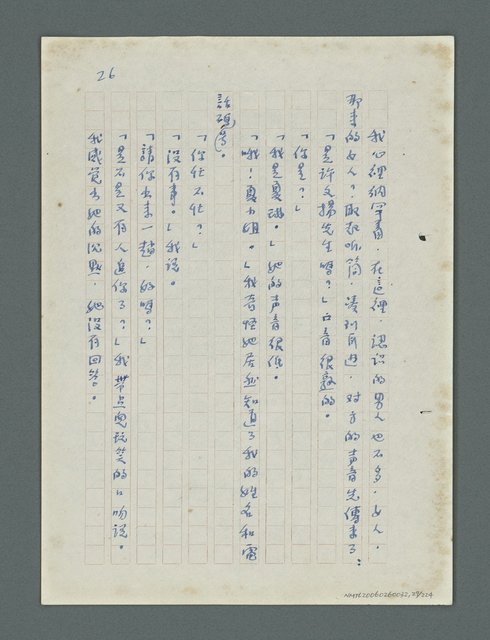 26
我心裡納罕著，在這裡，認識的男人也不多，女人，
那來的女人？取起听筒，湊到耳边，対方的声音先傳來了：
「是許文揚先生嗎？」口音很熟的。
「你是？」
「我是夏琳。」她的声音很低。
「哦！夏小姐。」我奇怪她居然知道了我的姓名和電
話碼。
「你忙不忙？」
「没有事。」我説。
「請你出來一趟，好嗎？」
「是不是又有人追你了？」我带点兒玩笑的口吻説。
我感觉出她的沉默，她没有回答。
NMTL20060260032,27/224